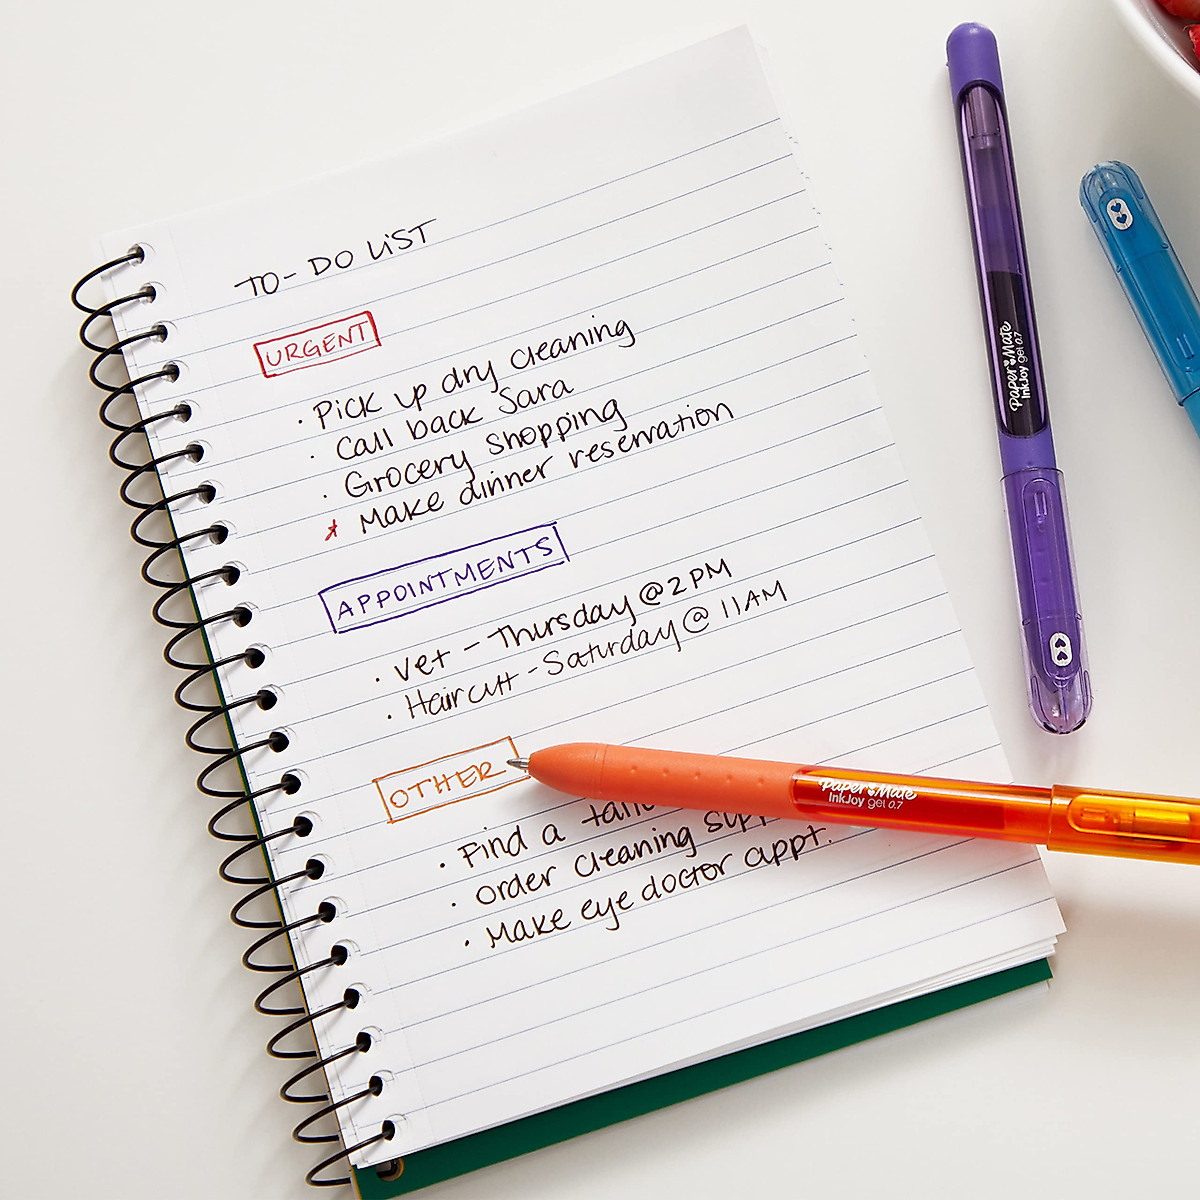 TO-DO LIST
URGENT
· Pick up dry cleaning
· Call back Sara
· Grocery shopping
* Make dinner reservation
APPOINTMENTS
· Vet - Thursday @ 2PM
· Haircut - Saturday @ 11AM
OTHER
· Find a
· Order cleaning
· Make eye doctor appt.
Paper Mate
InkJoy gel 0.7
Paper Mate
InkJoy gel 0.7